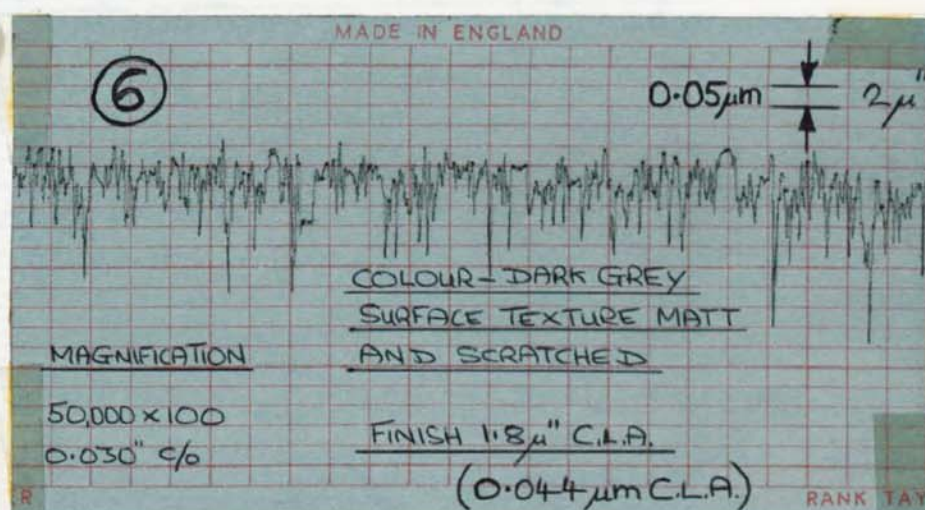 MADE IN ENGLAND
6
0.05µm 2µ"
COLOUR - DARK GREY
SURFACE TEXTURE MATT
AND SCRATCHED
MAGNIFICATION
50,000 × 100
0.030" c/o
FINISH 1.8µ" C.L.A.
(0.044 µm C.L.A.)
R RANK TAY